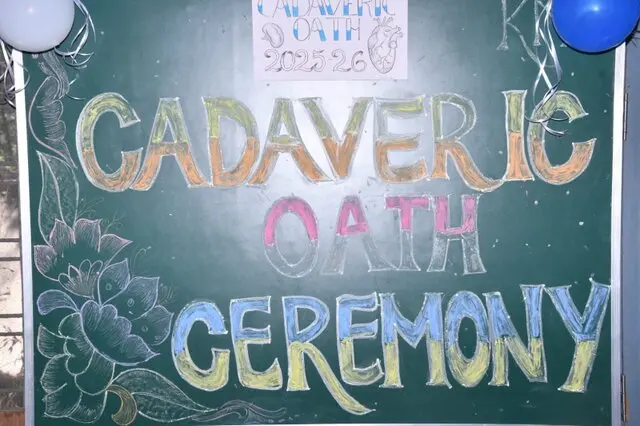 CADAVERIC
OATH
2025-26
CADAVERIC
OATH
CEREMONY